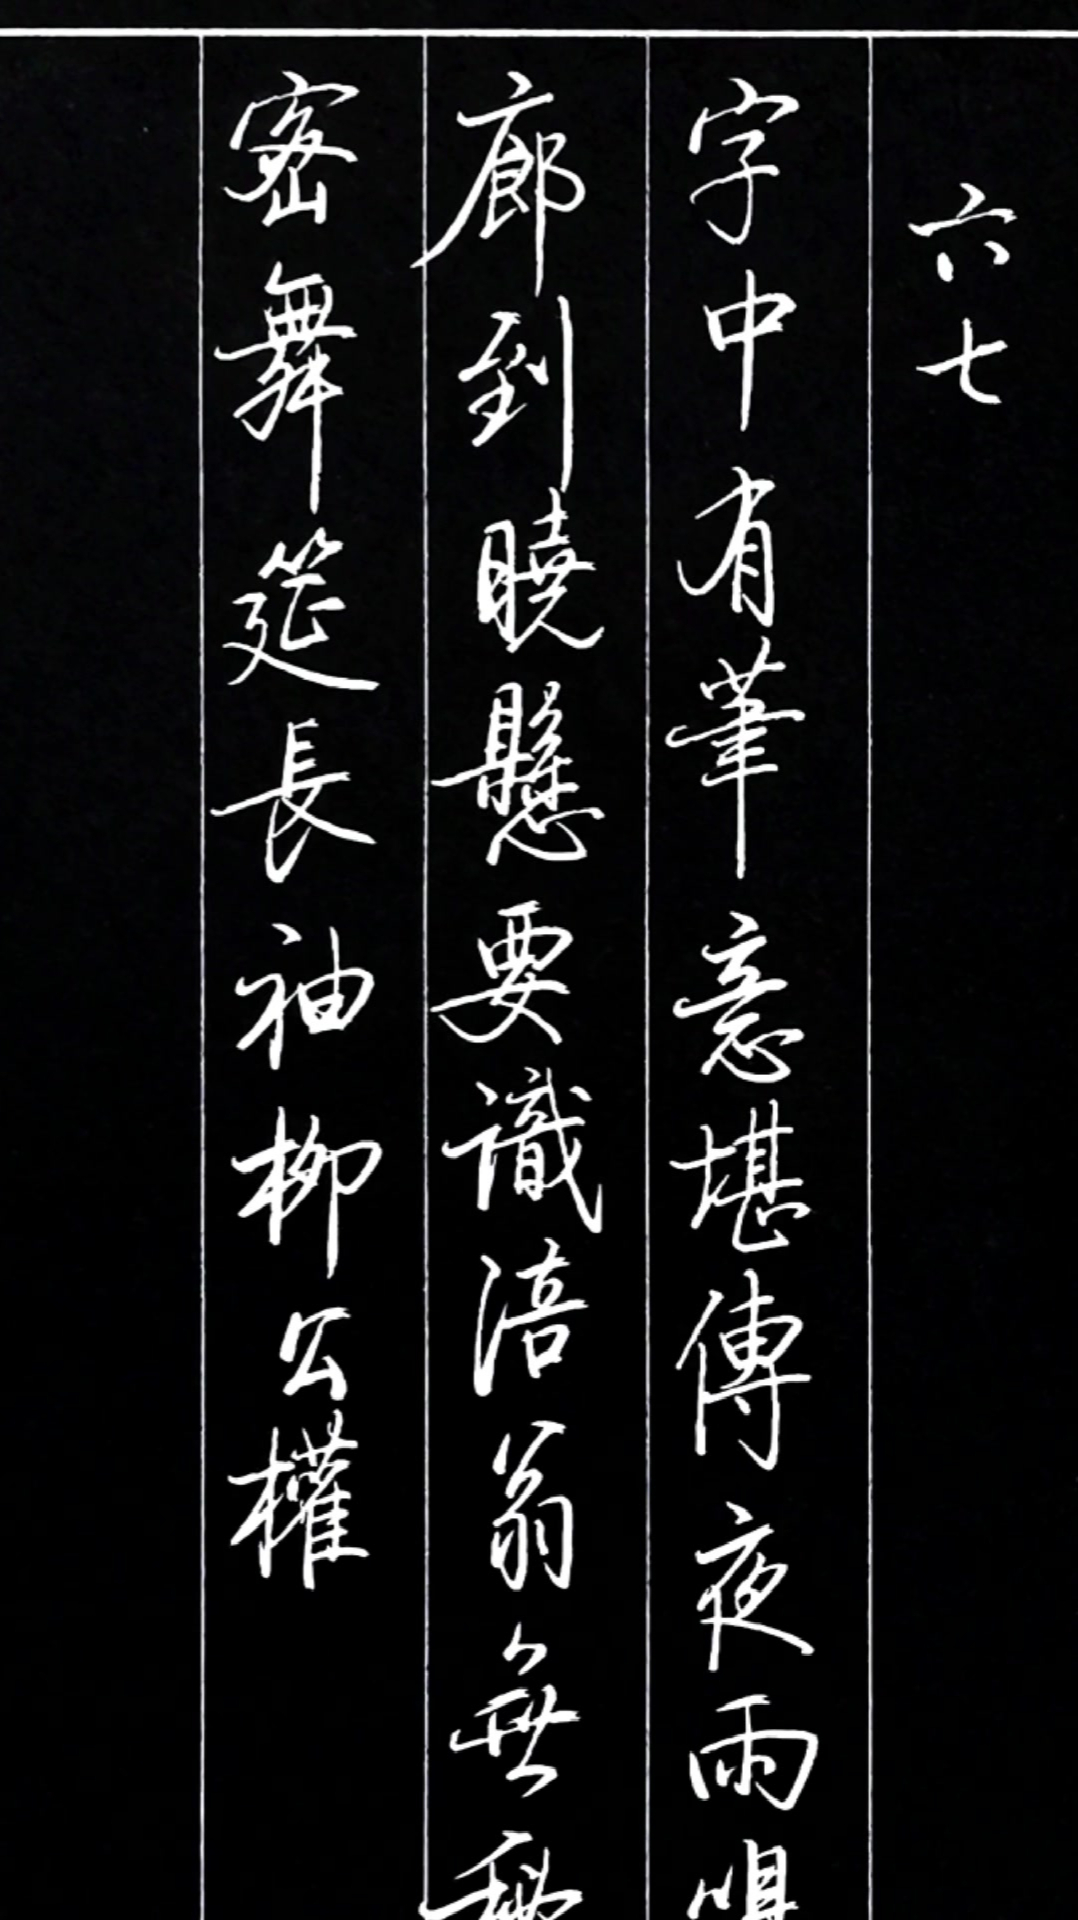 六七
字中有筆意堪傳夜雨鳴
廊到曉懸要識涪翁無秘
密舞筵長袖柳公權